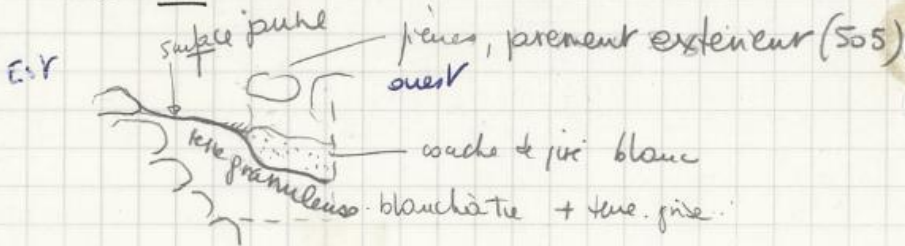 surface jaune
pierres, parement extérieur (505)
EST
ouest
couche de pisé blanc
terre granuleuse blanchâtre + terre grise